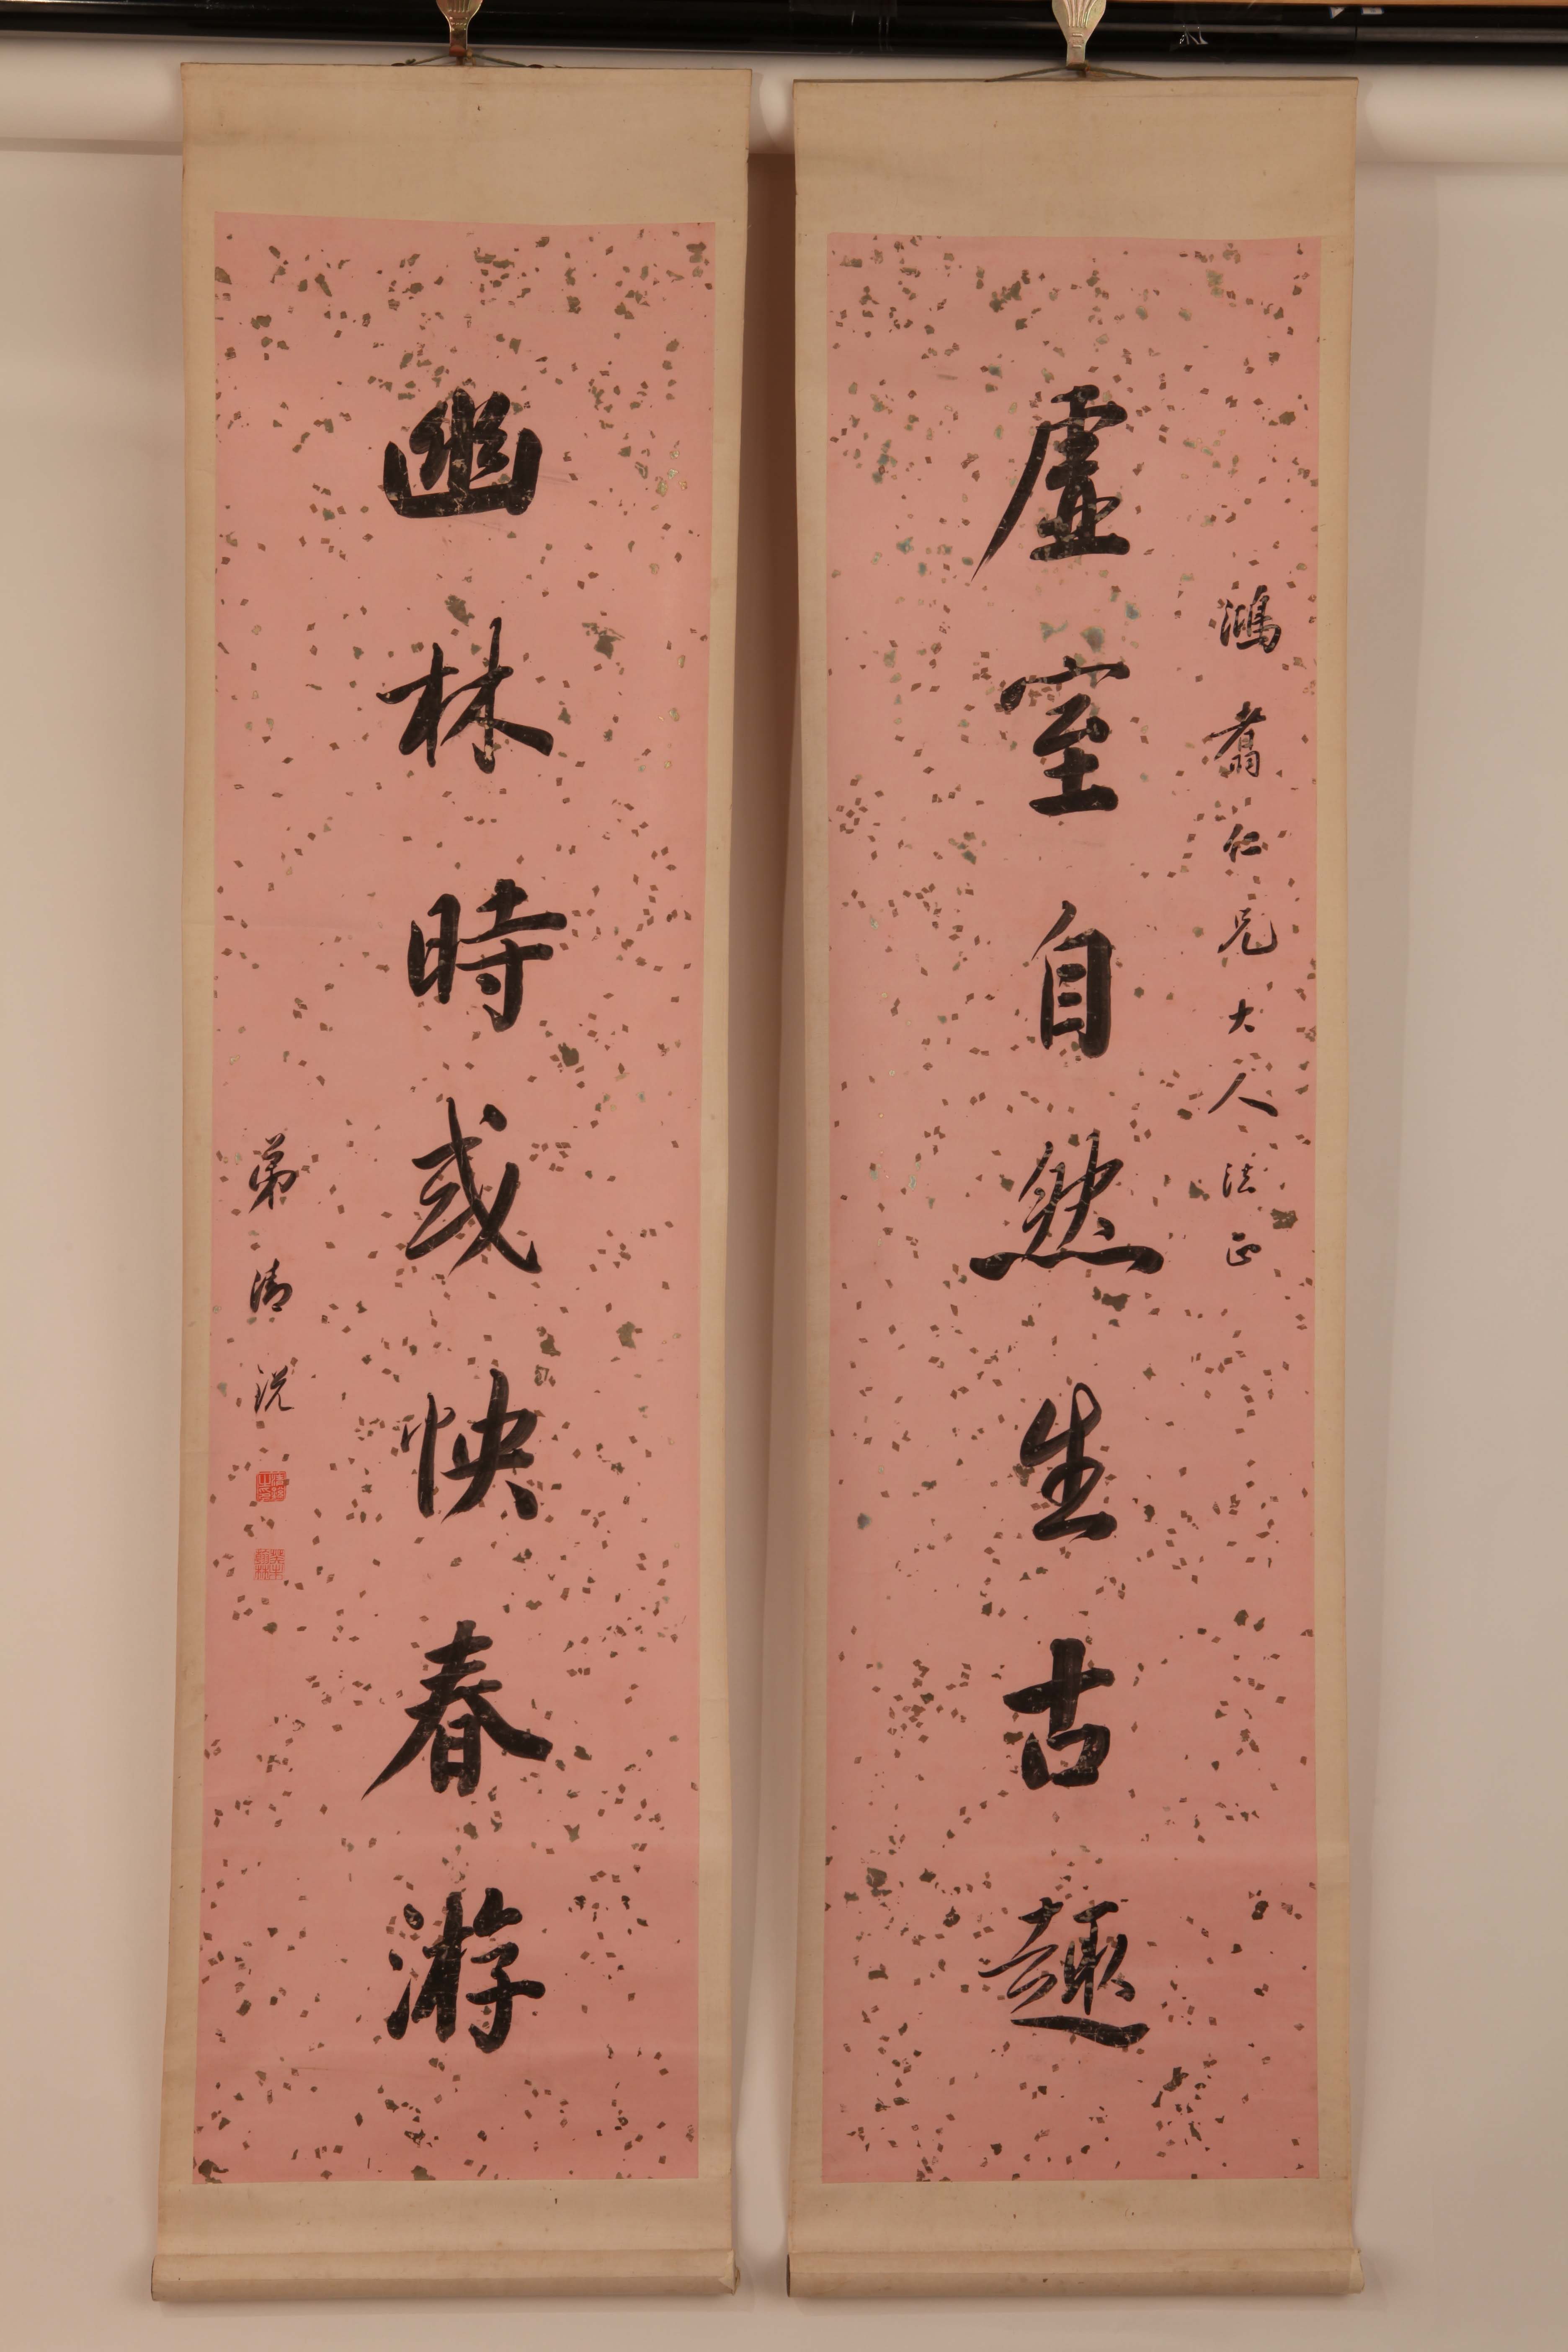 鴻翥仁兄大人法正
虛室自然生古趣
幽林時或快春游
弟清銳